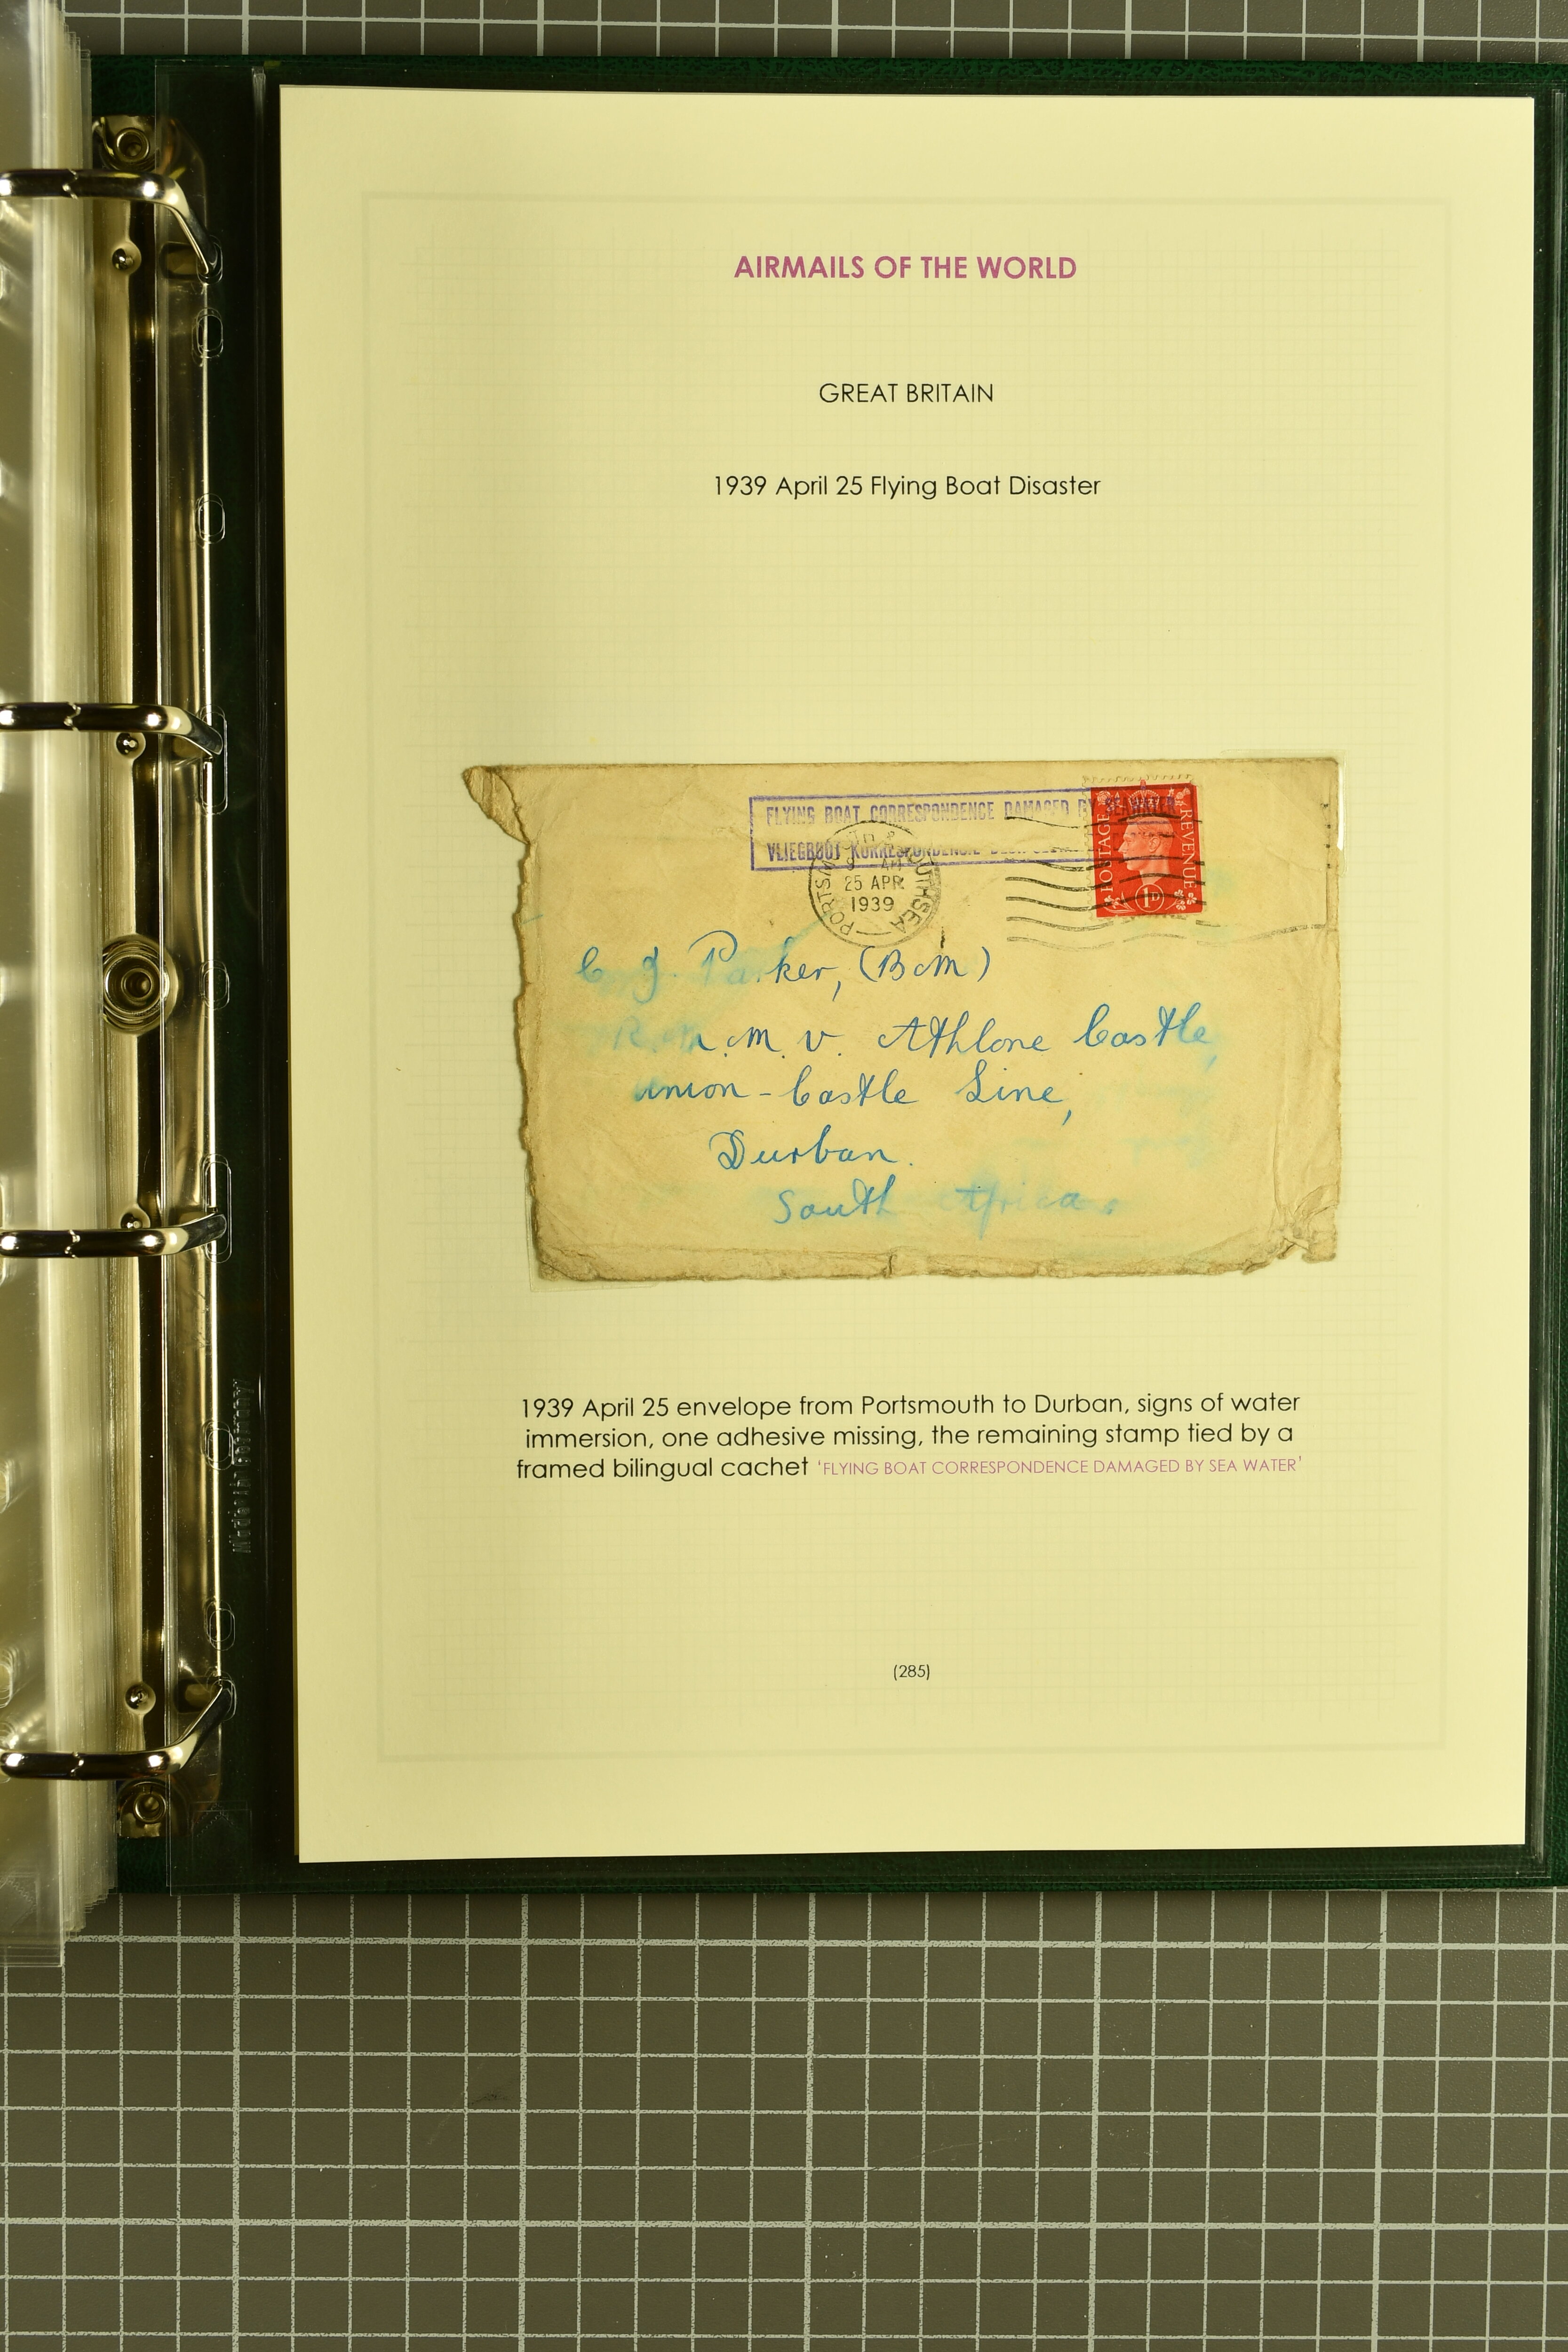 AIRMAILS OF THE WORLD
GREAT BRITAIN
1939 April 25 Flying Boat Disaster
FLYING BOAT CORRESPONDENCE DAMAGED BY SEAWATER
VLIEGBOOT KORRESPONDENSIE
PORTSMOUTH & SOUTHSEA
25 APR
1939
POSTAGE REVENUE
1D
C. J. Parker, (BCM)
R.M.M.V. Athlone Castle,
Union-Castle Line,
Durban.
South Africa.
1939 April 25 envelope from Portsmouth to Durban, signs of water
immersion, one adhesive missing, the remaining stamp tied by a
framed bilingual cachet 'FLYING BOAT CORRESPONDENCE DAMAGED BY SEA WATER'
(285)
Made in Germany